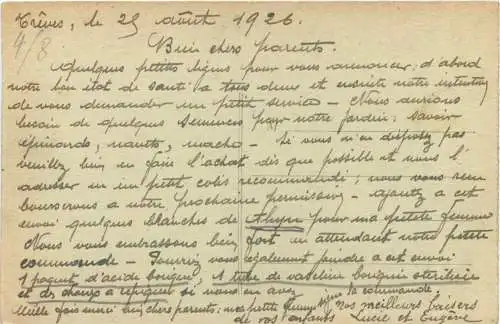 Trêves, le 25 août 1926.
4/8
Bien chers parents.
Quelques petites lignes pour vous annoncer; d'abord
notre bon état de santé à tous deux et ensuite notre intention
de vous demander un petit service - Nous aurions
besoin de quelques semences pour notre jardin: savoir
épinards, navets, mache - Si vous n'en disposez pas
veuillez bien en faire l'achat dès que possible et nous l'
adresser en un petit colis recommandé; nous vous rem
bourserons à notre prochaine permission - ajoutez à cet
envoi quelques branches de thym pour ma petite femme
Nous vous embrassons bien fort en attendant notre petite
commande - Pourriez vous également joindre à cet envoi
1 paquet d'acide borique, 1 tube de vaseline boriquée stérilisée
et si nous en avez
Mille fois merci chers parents; ma petite femme signe la commande.
Nos meilleurs baisers
de vos enfants Lucie et Eugène